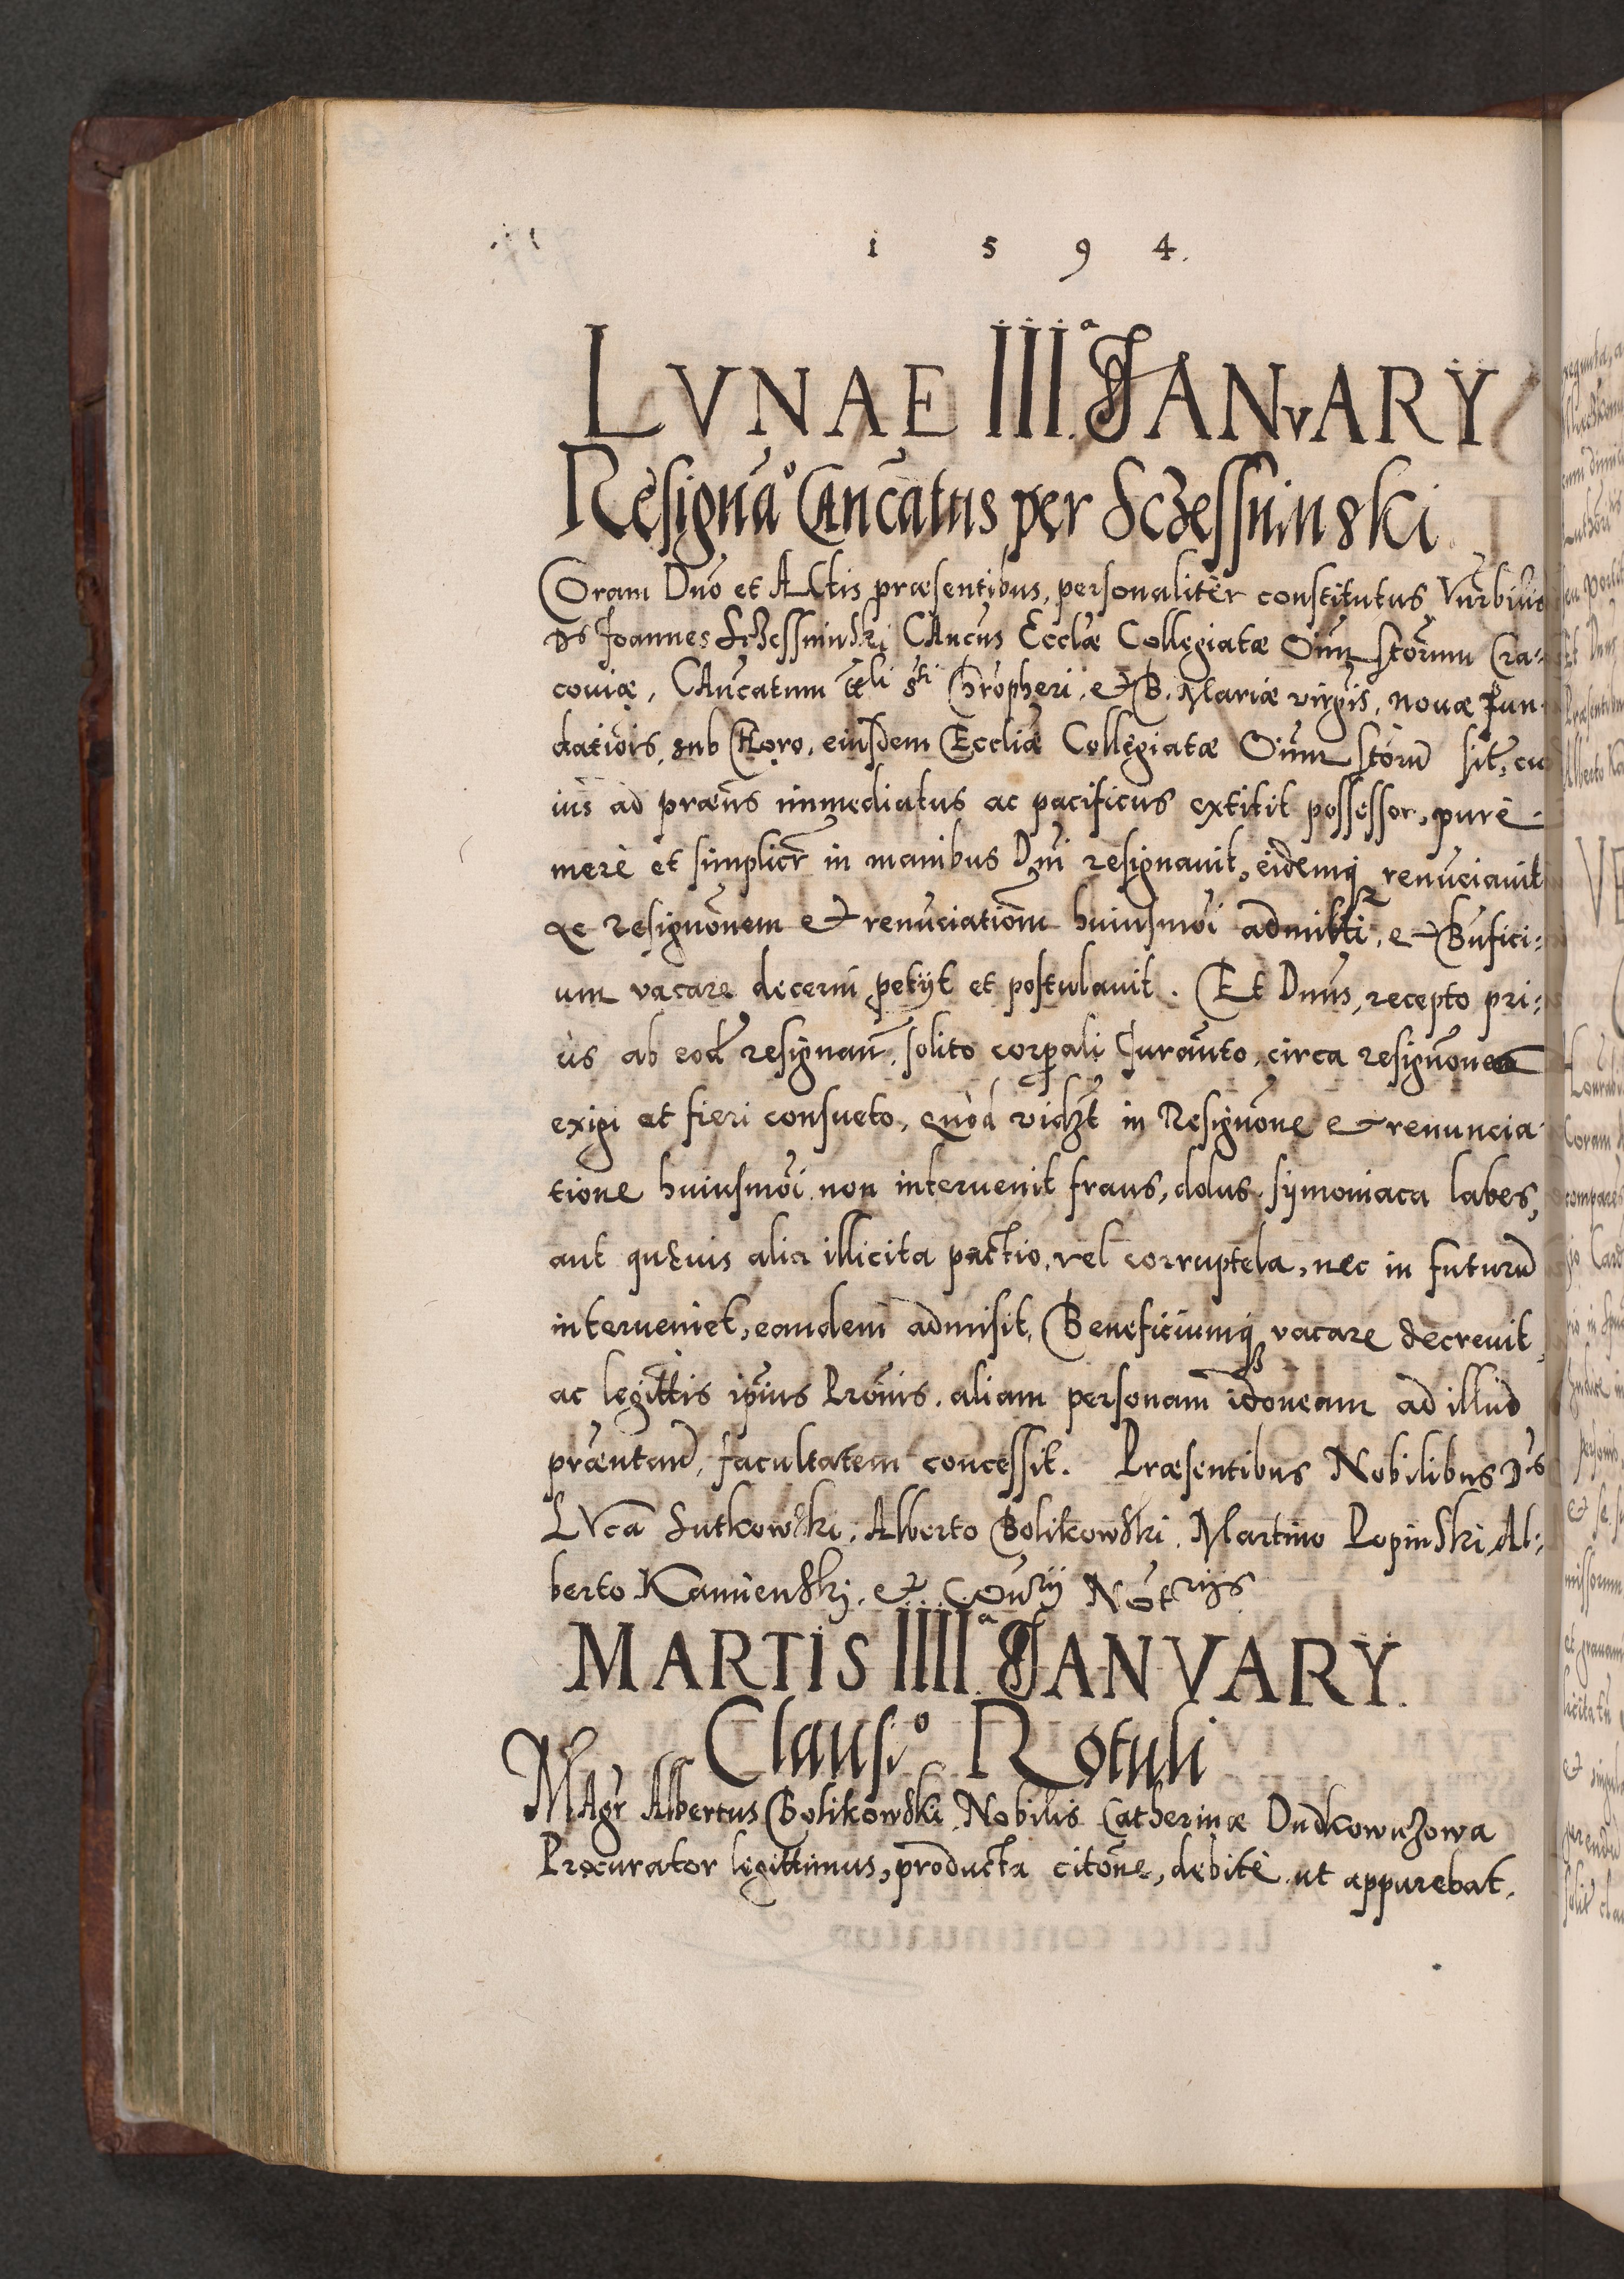 1 5 9 4.
LVNAE III.ª JANvARY
Resignāo Cāncatus per Sczessninski
Coram Dno et Actis præsentibus, personaliter constitutus Vnrblis
Ds Joannes Sczessninski CAncus Ecclæ Collegiatæ Oīum Stōrum Cra-
couiæ, CAncatum sti Chrōpheri, et B. Mariæ virgis, nouæ Fun-
datiōis, sub Choro, eiusdem Eccliæ Collegiatæ Oīum stōrū sit, cu
ius ad præns immediatus ac pacificus extitit possessor, purè
merè et simplicr in manibus Dni resignauit, eidemq renūciauit
Ac resignōnem et renūciatiōm huiusmōi admitti, et Bnfici-
um vacare decerni petijt et postulauit. Et Dnus, recepto pri-
us ab eod resignan, solito corpali Iurānto, circa resignōnem
exigi et fieri consueto, quòd vidzt in Resignōne et renuncia
tione huiusmōi non interuenit fraus, dolus, symoniaca labes,
aut quæuis alia illicita pactio, vel corruptela, nec in futurū
interueniet, eandem admisit, Beneficiumq vacare decreuit,
ac legittis ipius Prōnis, aliam personam idoneam ad illud
præntand, facultatem concessit. Præsentibus Nobilibus Dis
LVca Sutkowski, Alberto Bolikowski, Martino Lopinski, Al-
berto Kamienski, et Coūrij Nōtrijs
MARTIS IIII.ª JANVARY.
Clausio Rotuli
MAgr Albertus Bolikowski, Nobilis Catherinæ Dudkowiczowa
Procurator legittimus, producta citōne, debitè ut appurebat,